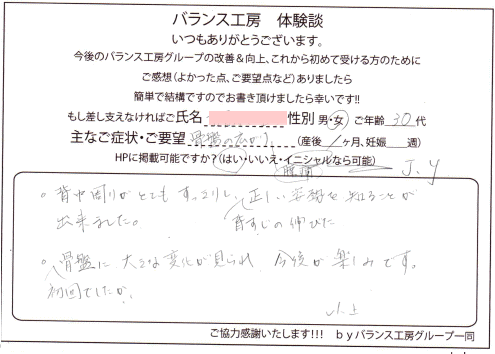 バランス工房 体験談
いつもありがとうございます。
今後のバランス工房グループの改善&向上、これから初めて受ける方のために
ご感想(よかった点、ご要望点など)ありましたら
簡単で結構ですのでお書き頂けましたら幸いです!!
もし差し支えなければご氏名 性別 男・女 ご年齢 30代
主なご症状・ご要望 骨盤の広がり。 (産後 / ヶ月、妊娠 週)
HPに掲載可能ですか?(はい・いいえ・イニシャルなら可能) J.Y
腰痛
。背中周りがとてもすっきりし、正しい姿勢を知ることが
出来ました。 背すじの伸びた
。骨盤に大きな変化が見られ 今後が楽しみです。
初回でしたが、
以上
ご協力感謝いたします!!! byバランス工房グループ一同